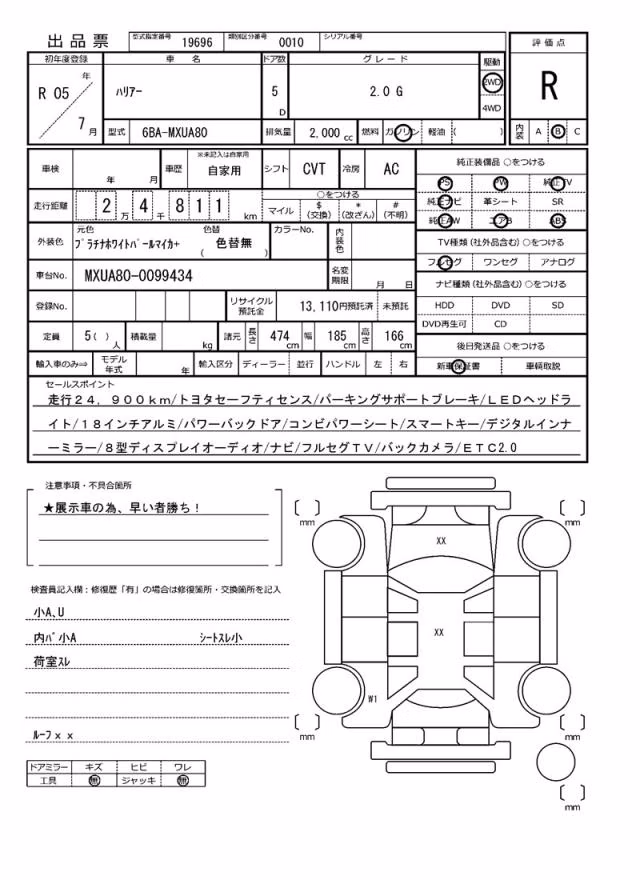 出品票 型式指定番号 19696 類別区分番号 0010 シリアル番号
評価点
初年度登録 車名 ドア数 グレード 駆動
R 05 年 ハリアー 5 D 2.0 G 2WD R
7 月 4WD
型式 6BA-MXUA80 排気量 2,000 cc 燃料 ガソリン 軽油 ( ) 内装 A B C
車検 年 月 車歴 ※未記入は自家用 自家用 シフト CVT 冷房 AC
純正装備品 ○をつける
PS PW 純正TV
純正ナビ 革シート SR
純正AW エアB ABS
走行距離 2 万 4 千 8 1 1 km ○をつける
マイル $ (交換) * (改ざん) # (不明)
外装色 元色 プラチナホワイトパールマイカ+ 色替 ( 色替無 ) カラーNo. 内装色
TV種類 (社外品含む) ○をつける
フルセグ ワンセグ アナログ
車台No. MXUA80-0099434 名変期限 月 日
ナビ種類 (社外品含む) ○をつける
登録No. リサイクル預託金 13,110円預託済 未預託
HDD DVD SD
DVD再生可 CD
定員 5 ( ) 人 積載量 kg 諸元 長さ 474 cm 幅 185 cm 高さ 166 cm
後日発送品 ○をつける
輸入車のみ⇒ モデル年式 年 輸入区分 ディーラー 並行 ハンドル 左 右
新車保証書 車輌取説
セールスポイント
走行24，900km/トヨタセーフティセンス/パーキングサポートブレーキ/LEDヘッドラ
イト/18インチアルミ/パワーバックドア/コンビパワーシート/スマートキー/デジタルインナ
ーミラー/8型ディスプレイオーディオ/ナビ/フルセグTV/バックカメラ/ETC2.0
注意事項・不具合箇所
★展示車の為、早い者勝ち！
検査員記入欄：修復歴「有」の場合は修復箇所・交換箇所を記入
小A、U
内バ小A シートスレ小
荷室スレ
ルーフxx
ドアミラー キズ ヒビ ワレ
工具 無 ジャッキ 無
mm
mm
XX
XX
W1
mm
mm
mm